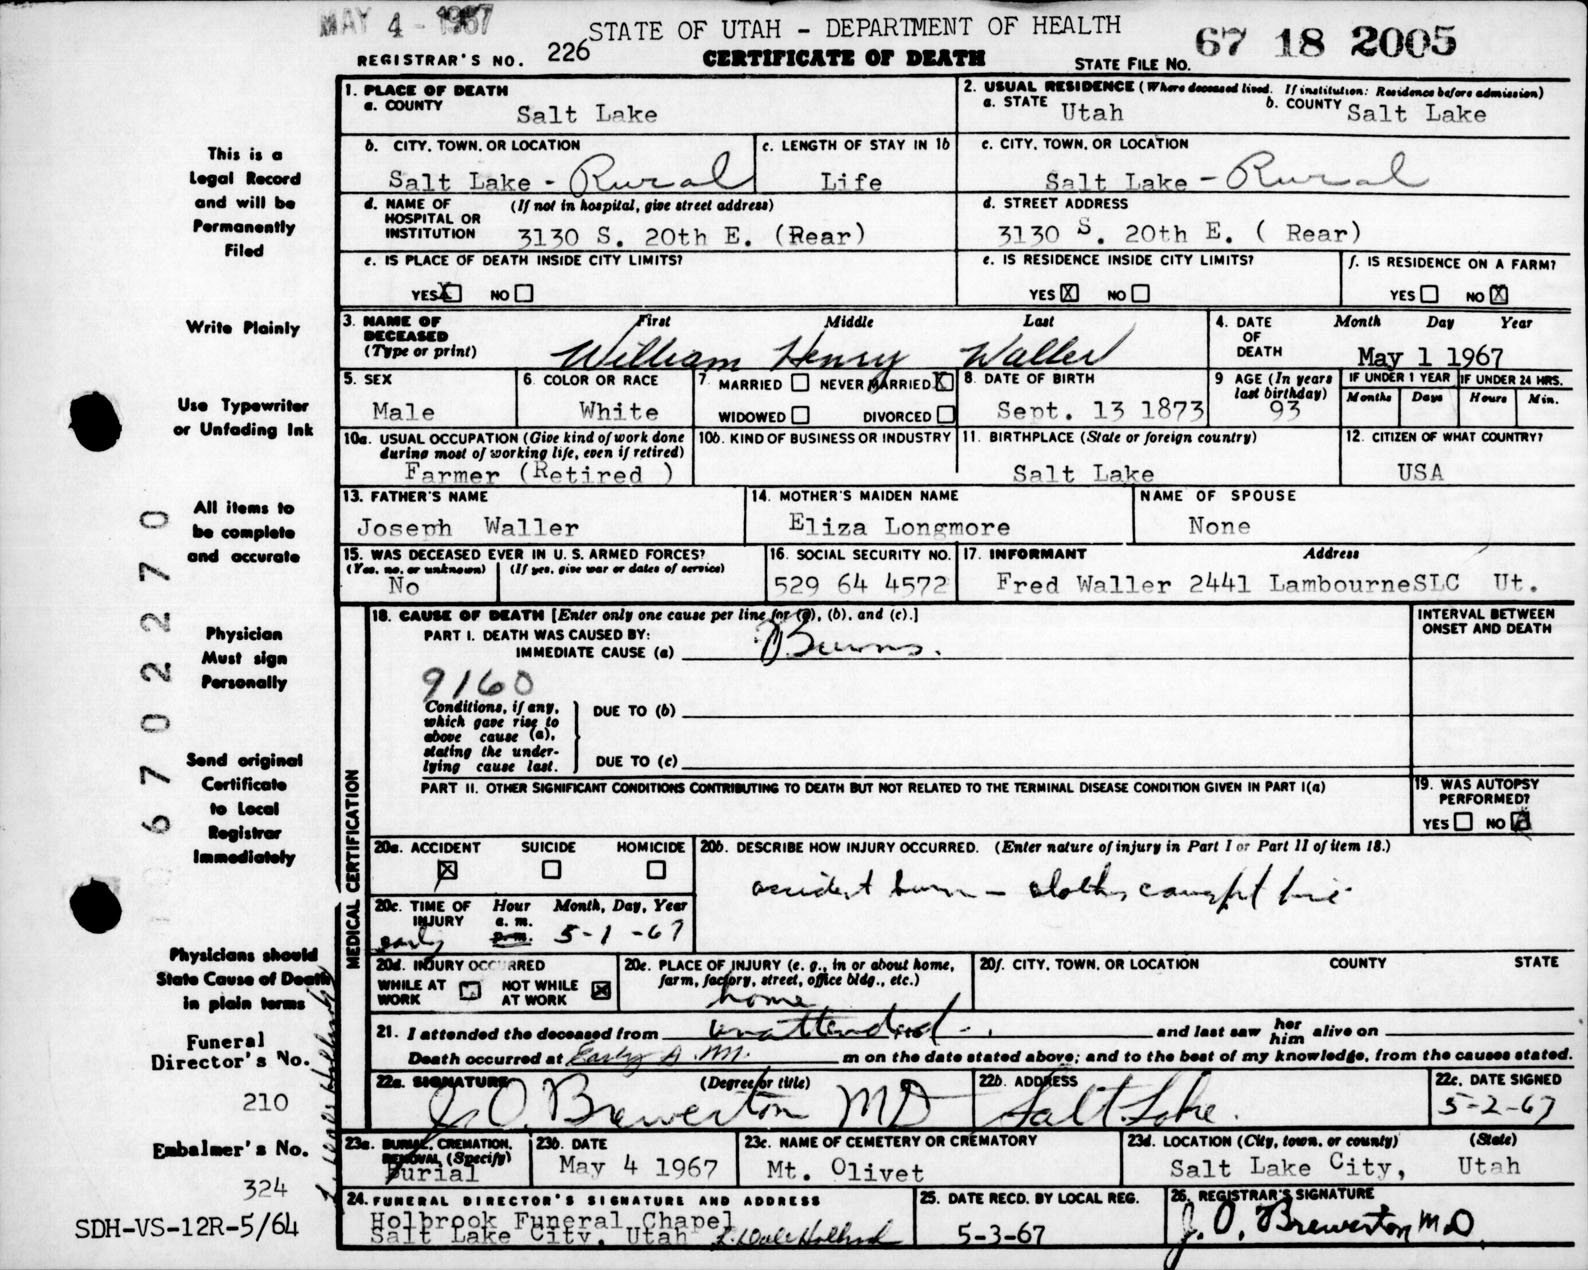 MAY 4 - 1967
STATE OF UTAH - DEPARTMENT OF HEALTH
67 18 2005
REGISTRAR'S NO. 226
CERTIFICATE OF DEATH
STATE FILE NO.
1. PLACE OF DEATH
a. COUNTY
Salt Lake
2. USUAL RESIDENCE (Where deceased lived. If institution: Residence before admission)
a. STATE Utah
b. COUNTY Salt Lake
b. CITY, TOWN, OR LOCATION
Salt Lake - Rural
c. LENGTH OF STAY IN 1b
Life
c. CITY, TOWN, OR LOCATION
Salt Lake - Rural
d. NAME OF HOSPITAL OR INSTITUTION
(If not in hospital, give street address)
3130 S. 20th E. (Rear)
d. STREET ADDRESS
3130 S. 20th E. ( Rear)
e. IS PLACE OF DEATH INSIDE CITY LIMITS?
YES X NO
e. IS RESIDENCE INSIDE CITY LIMITS?
YES X NO
f. IS RESIDENCE ON A FARM?
YES NO X
3. NAME OF DECEASED
(Type or print)
First Middle Last
William Henry Waller
4. DATE OF DEATH
Month Day Year
May 1 1967
5. SEX
Male
6. COLOR OR RACE
White
7. MARRIED NEVER MARRIED X
WIDOWED DIVORCED
8. DATE OF BIRTH
Sept. 13 1873
9 AGE (In years last birthday)
93
IF UNDER 1 YEAR
Months Days
IF UNDER 24 HRS.
Hours Min.
10a. USUAL OCCUPATION (Give kind of work done during most of working life, even if retired)
Farmer (Retired )
10b. KIND OF BUSINESS OR INDUSTRY
11. BIRTHPLACE (State or foreign country)
Salt Lake
12. CITIZEN OF WHAT COUNTRY?
USA
13. FATHER'S NAME
Joseph Waller
14. MOTHER'S MAIDEN NAME
Eliza Longmore
NAME OF SPOUSE
None
15. WAS DECEASED EVER IN U. S. ARMED FORCES?
(Yes, no, or unknown) (If yes, give war or dates of service)
No
16. SOCIAL SECURITY NO.
529 64 4572
17. INFORMANT Address
Fred Waller 2441 LambourneSLC Ut.
MEDICAL CERTIFICATION
18. CAUSE OF DEATH [Enter only one cause per line for (a), (b), and (c).]
PART I. DEATH WAS CAUSED BY:
IMMEDIATE CAUSE (a) Burns.
INTERVAL BETWEEN ONSET AND DEATH
9160
Conditions, if any, which gave rise to above cause (a), stating the underlying cause last.
DUE TO (b)
DUE TO (c)
PART II. OTHER SIGNIFICANT CONDITIONS CONTRIBUTING TO DEATH BUT NOT RELATED TO THE TERMINAL DISEASE CONDITION GIVEN IN PART I(a)
19. WAS AUTOPSY PERFORMED?
YES NO X
20a. ACCIDENT SUICIDE HOMICIDE
X
20b. DESCRIBE HOW INJURY OCCURRED. (Enter nature of injury in Part I or Part II of item 18.)
accident burn - clothes caught fire
20c. TIME OF INJURY
Hour Month, Day, Year
a. m.
p. m.
early 5-1-67
20d. INJURY OCCURRED
WHILE AT WORK NOT WHILE AT WORK X
20e. PLACE OF INJURY (e. g., in or about home, farm, factory, street, office bldg., etc.)
home
20f. CITY, TOWN, OR LOCATION COUNTY STATE
21. I attended the deceased from unattended and last saw her him alive on
Death occurred at Early A.M. m on the date stated above; and to the best of my knowledge, from the causes stated.
22a. SIGNATURE (Degree or title)
J. O. Brewerton MD
22b. ADDRESS
Salt Lake.
22c. DATE SIGNED
5-2-67
23a. BURIAL, CREMATION, REMOVAL (Specify)
Burial
23b. DATE
May 4 1967
23c. NAME OF CEMETERY OR CREMATORY
Mt. Olivet
23d. LOCATION (City, town, or county) (State)
Salt Lake City, Utah
24. FUNERAL DIRECTOR'S SIGNATURE AND ADDRESS
Holbrook Funeral Chapel
Salt Lake City. Utah
25. DATE RECD. BY LOCAL REG.
5-3-67
26. REGISTRAR'S SIGNATURE
J. O. Brewerton MD
This is a
Legal Record
and will be
Permanently
Filed
Write Plainly
Use Typewriter
or Unfading Ink
All items to
be complete
and accurate
Physician
Must sign
Personally
Send original
Certificate
to Local
Registrar
Immediately
Physicians should
State Cause of Death
in plain terms
Funeral
Director's No.
210
Embalmer's No.
324
SDH-VS-12R-5/64
6702270